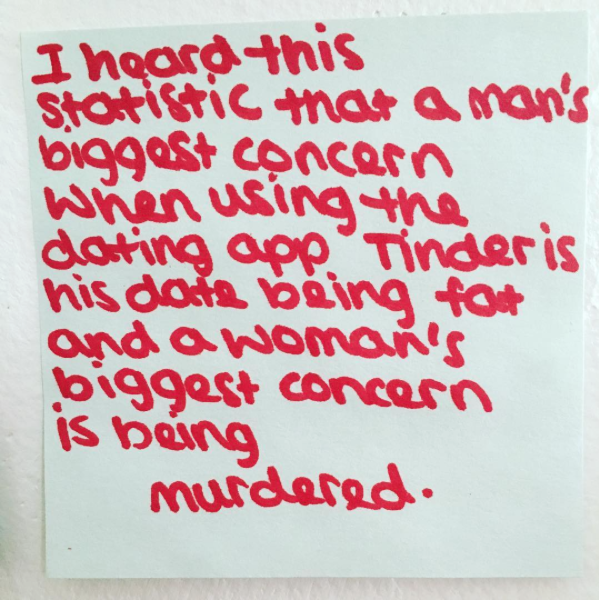 I heard this
statistic that a man's
biggest concern
when using the
dating app Tinder is
his date being fat
and a woman's
biggest concern
is being
murdered.